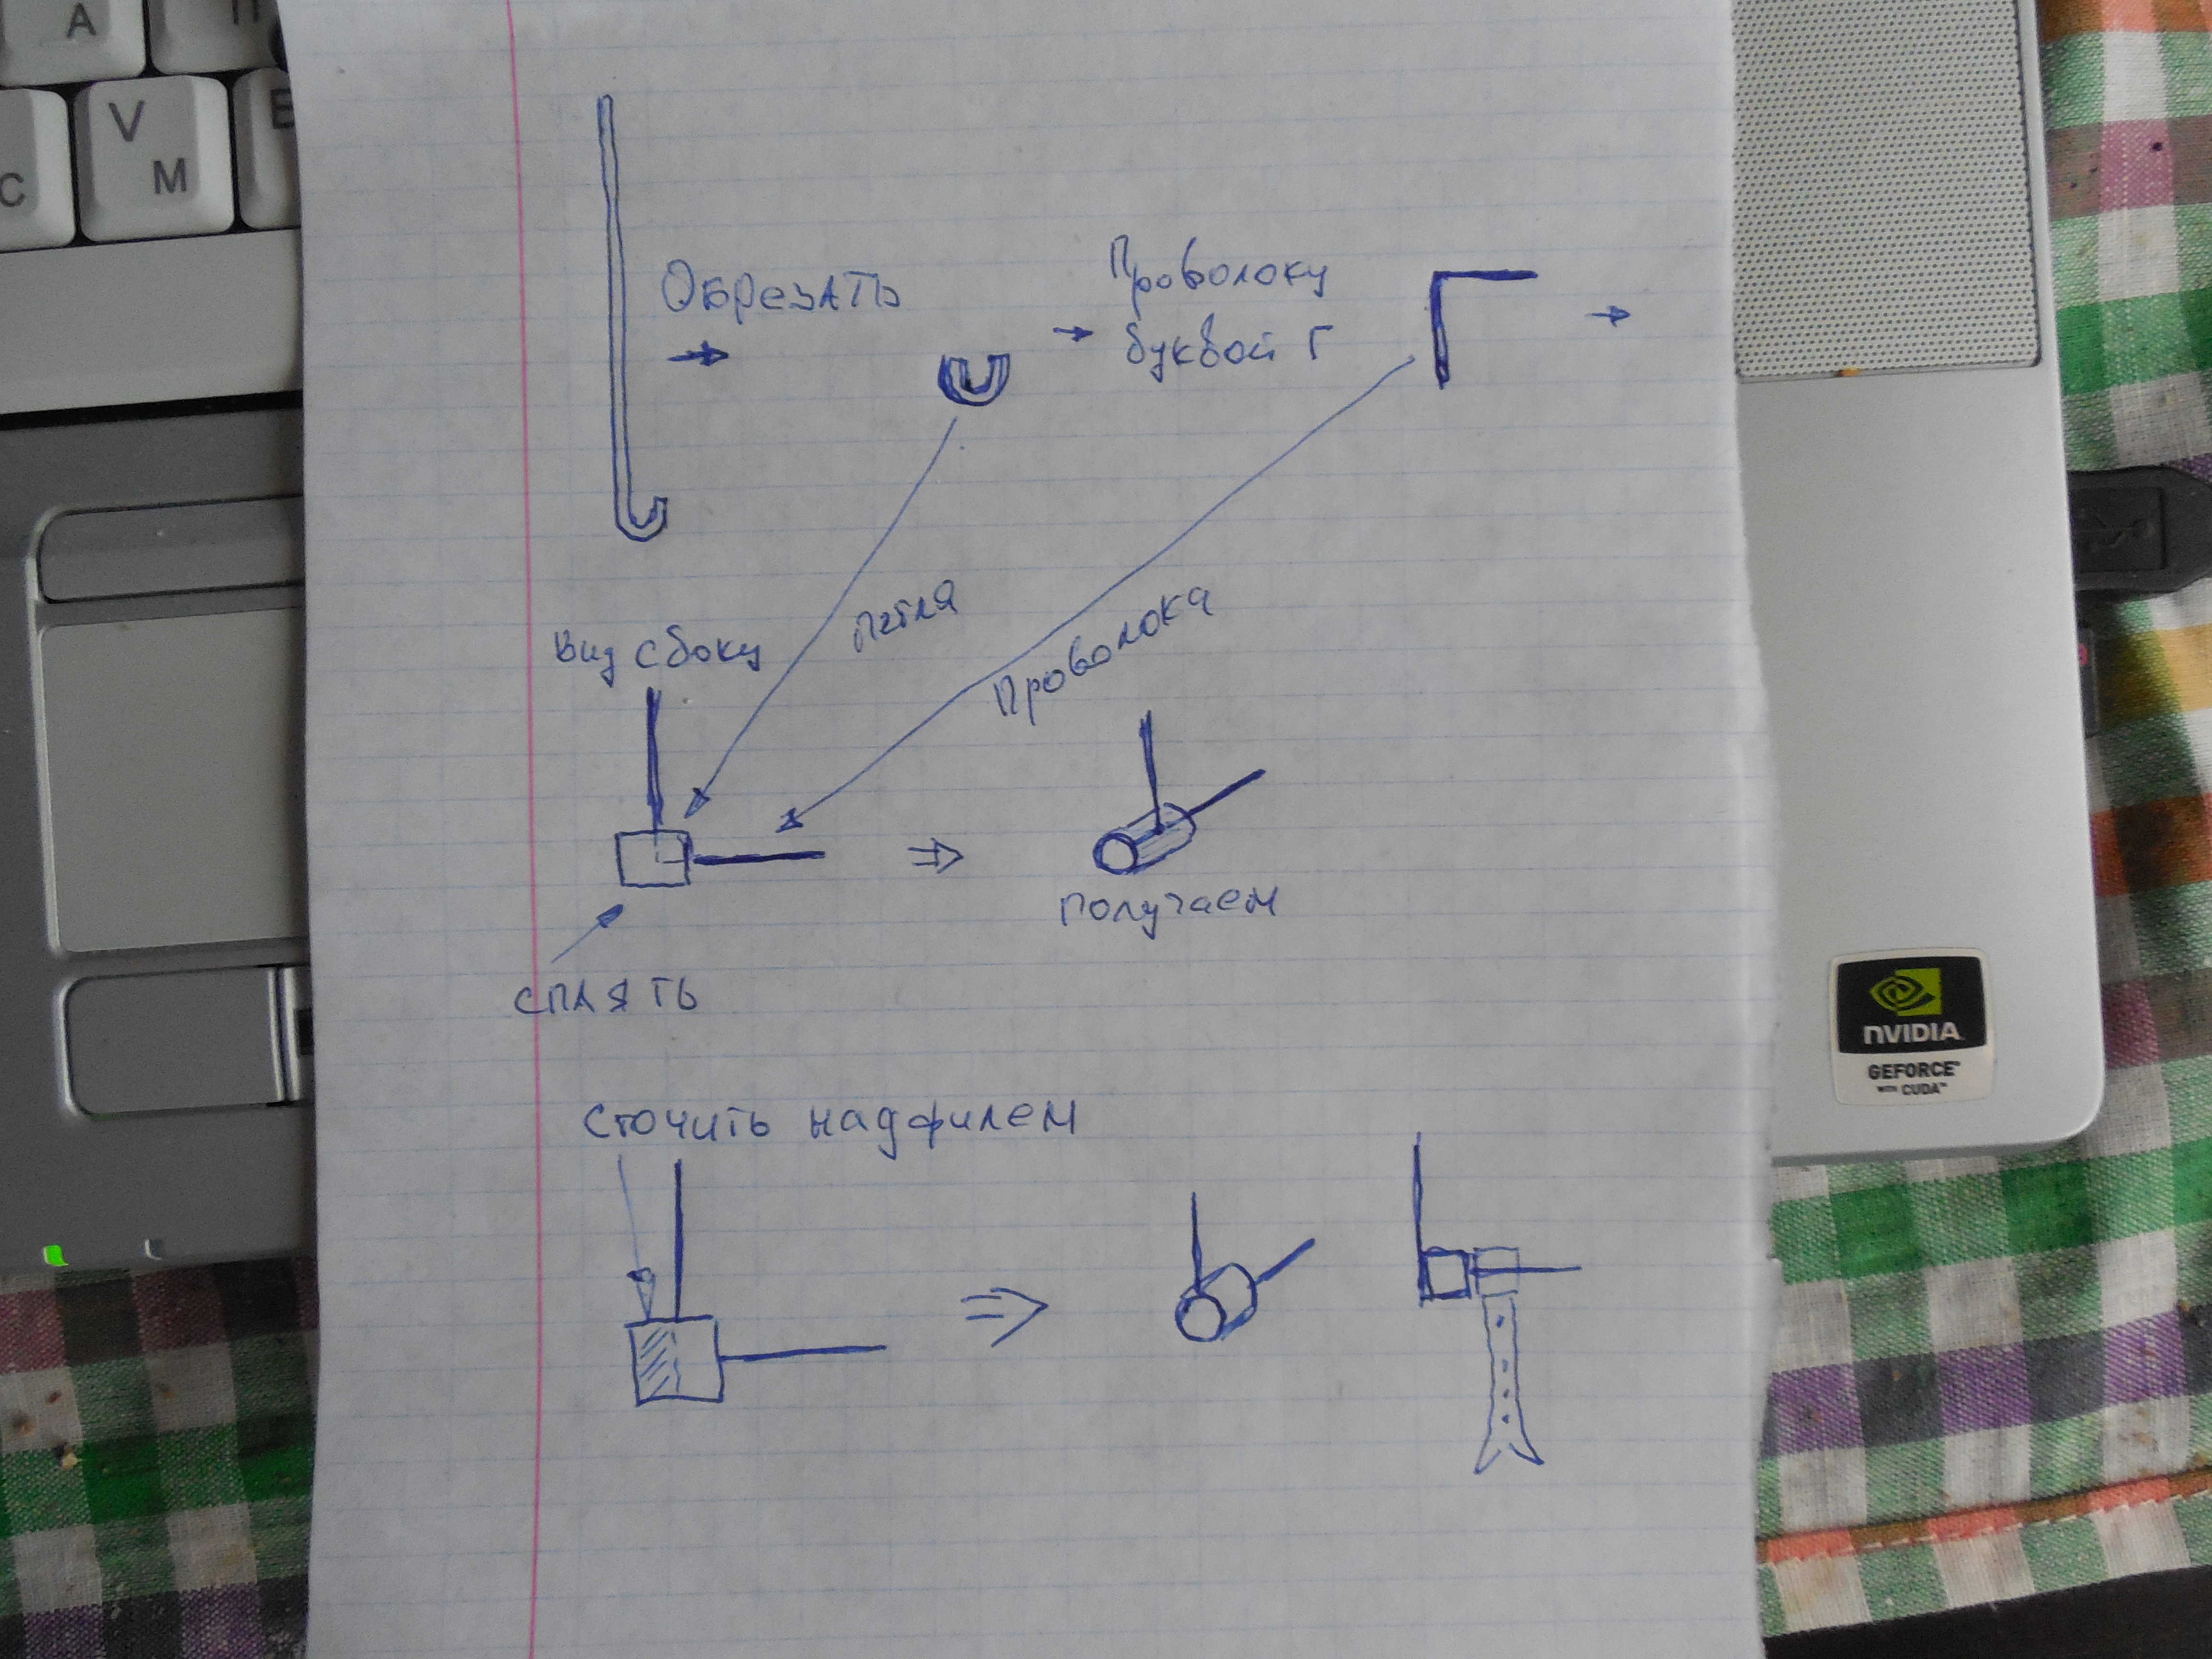 А
П
С
V
М
Обрезать
Проволоку
буквой Г
Петля
Проволока
Вид с боку
Получаем
Спаять
Сточить надфилем
NVIDIA
GEFORCE
WITH CUDA